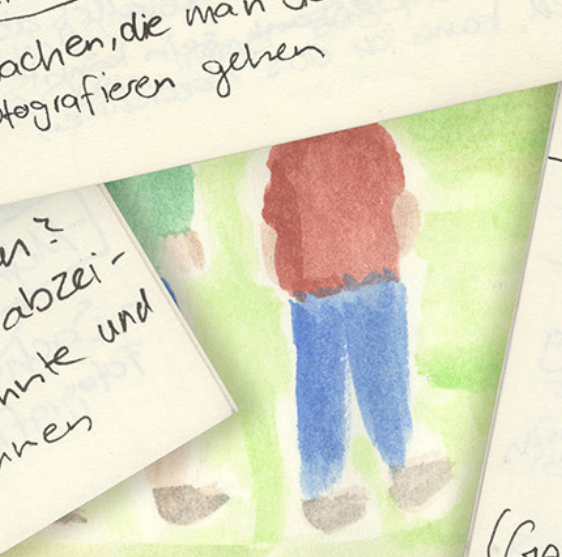 man
achen, die man
tografieren gehen
n?
abzei-
nnte und
nnen
(Ge